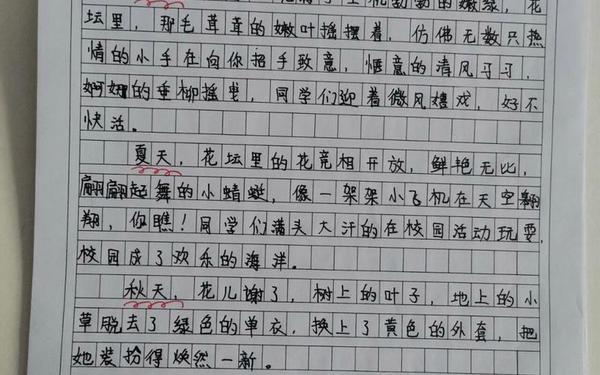 勃勃的嫩绿，花
坛里，那毛茸茸的嫩叶摇摆着，仿佛无数只热
情的小手在向你招手致意，惬意的清风习习，
婀娜的垂柳摇曳，同学们迎着微风嬉戏，好不
快活。
夏天，花坛里的花竞相开放，鲜艳无比，
翩翩起舞的小蜻蜓，像一架架小飞机在天空翱
翔，你瞧！同学们满头大汗的在校园活动玩耍，
校园成了欢乐的海洋。
秋天，花儿谢了，树上的叶子，地上的小
草脱去了绿色的单衣，换上了黄色的外套，把
她装扮得焕然一新。